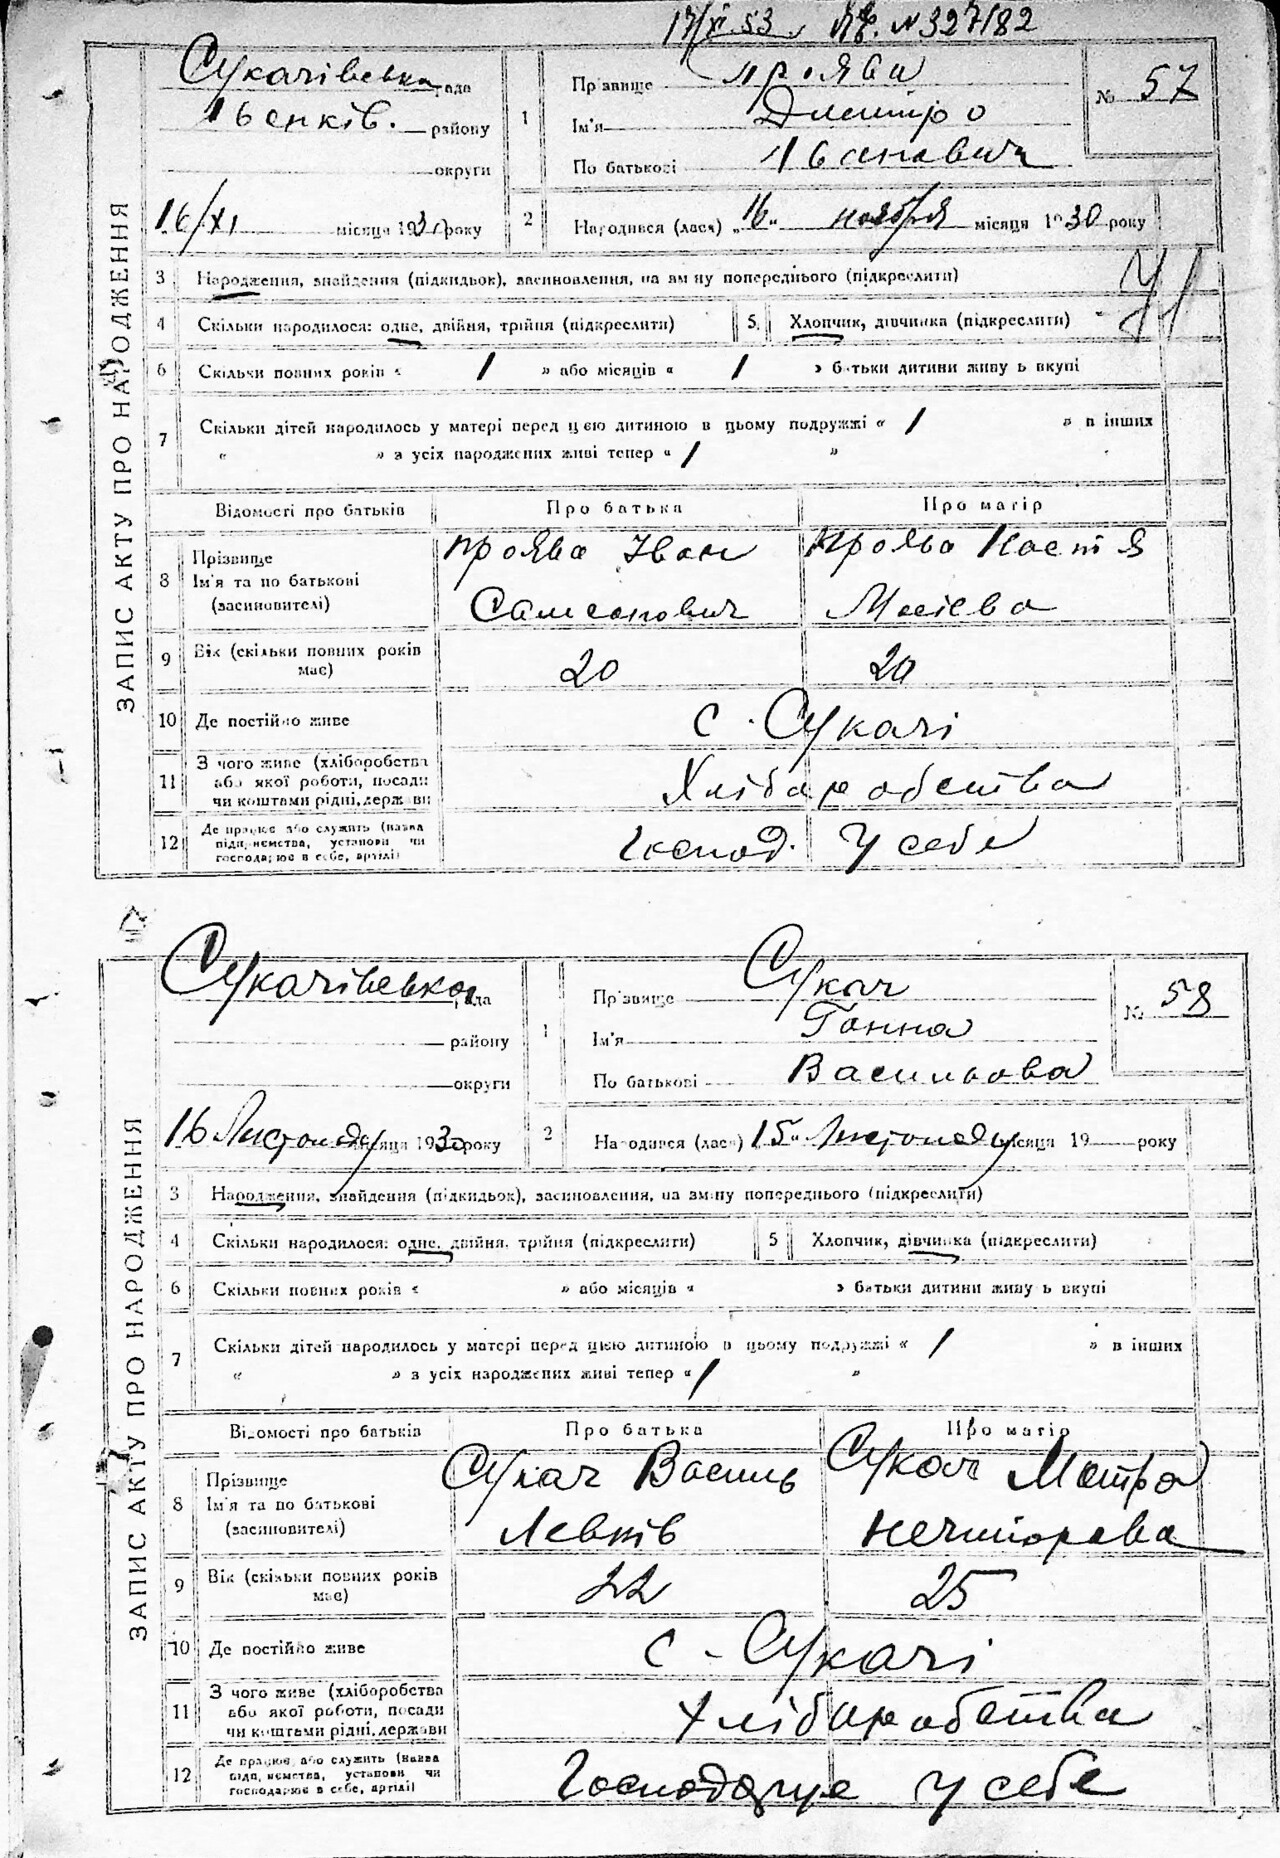 17/XI 53. № 327182
Сукачівська рада
Ієнків. району
округи
1
Прізвище Проява
Ім'я Дмитро
По батькові Іванович
№ 57
16/XI місяця 1930 року
2
Народився (лася) „16" ноября місяця 1930 року
ЗАПИС АКТУ ПРО НАРОДЖЕННЯ
3 Народження, знайдення (підкидьок), засиновлення, на зміну попереднього (підкреслити)
4 Скільки народилося: одне, двійня, трійня (підкреслити)
5. Хлопчик, дівчинка (підкреслити)
6 Скільки повних років « / » або місяців « / » батьки дитини живуть вкупі
7 Скільки дітей народилось у матері перед цією дитиною в цьому подружжі « / » в інших
« » з усіх народжених живі тепер « / »
Відомості про батьків Про батька Про матір
8 Прізвище Ім'я та по батькові (засиновителі)
Проява Іван Самсонович
Проява Настя Мосієва
9 Вік (скільки повних років має) 20 20
10 Де постійно живе с. Сукачі
11 З чого живе (хліборобства або якої роботи, посади чи коштами рідні, держави Хліборобства
12 Де працює або служить (назва підприємства, установи чи господарює в себе, артілі) Господ. у себе
Сукачівська рада
району
округи
1
Прізвище Сукач
Ім'я Ганна
По батькові Васильова
№ 58
16 Листопаду місяця 1930 року
2
Народився (лася) „15" Листопаду місяця 19 року
ЗАПИС АКТУ ПРО НАРОДЖЕННЯ
3 Народження, знайдення (підкидьок), засиновлення, на зміну попереднього (підкреслити)
4 Скільки народилося: одне, двійня, трійня (підкреслити)
5 Хлопчик, дівчинка (підкреслити)
6 Скільки повних років « » або місяців « » батьки дитини живуть вкупі
7 Скільки дітей народилось у матері перед цією дитиною в цьому подружжі « / » в інших
« » з усіх народжених живі тепер « / »
Відомості про батьків Про батька Про матір
8 Прізвище Ім'я та по батькові (засиновителі)
Сукач Василь Левків
Сукач Мотря Нечипорова
9 Вік (скільки повних років має) 22 25
10 Де постійно живе с. Сукачі
11 З чого живе (хліборобства або якої роботи, посади чи коштами рідні, держави Хліборобства
12 Де працює або служить (назва підприємства, установи чи господарює в себе, артілі) Господарує у себе